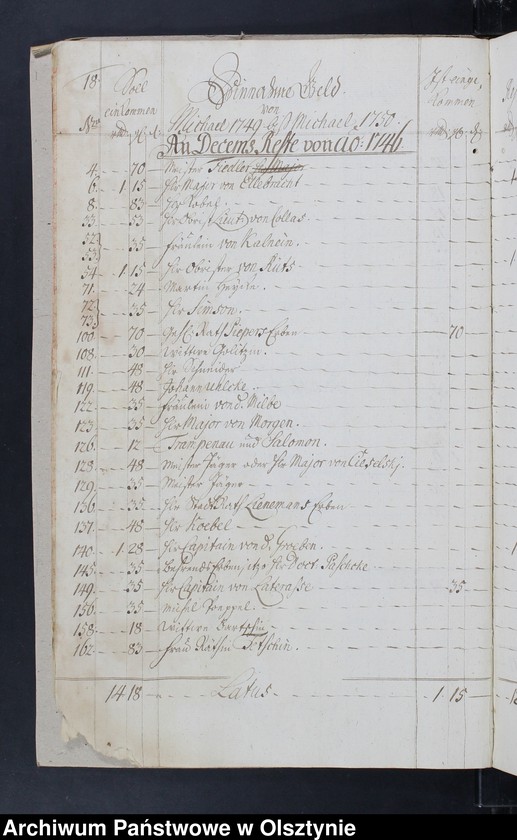 18. Soll Einnahme Geld Ist einge,
einkommen von kommen
No. Michael 1749 bis Michael 1750
An Decems Reste von ao: 1746
4. 70 Meister Fiedler
6. 1 15 Hr Major von Ellebracht
8. 83 Hr
33. 53 Hr Obrist Lieut: von Collas
52. 53. 35 Fräulein von Kalnein.
54 1 15 Hr Obrister von Ruts
71. 24 Martin
72. 73. 35 Hr Simson.
100. 70 Rath Piepers Erben 70
108. 30 Wittwe
111. 48 Hr Schneider
119. 48 Johann Uhlcke
122. 35 Fräulein von d. Milbe
123. 35 Hr Major von Morgen.
126. 12 Trampenau und Salomon.
128. 48 Meister Jäger oder Hr Major von Cieselskj.
129. 35 Meister Jäger
136. 35 Hr Stadt Rath Lienemans Erben
137. 48 Hr Koebel
140. 1 28 Hr Capitain von d. Groeben.
145. 35 Hr Doct Paschche
149. 35 Hr Capitain von Laterasse 35
156. 35 Michel
158. 18 Wittwe
162. 83 Frau Räthin
14 18 Latus 1 15
Archiwum Państwowe w Olsztynie